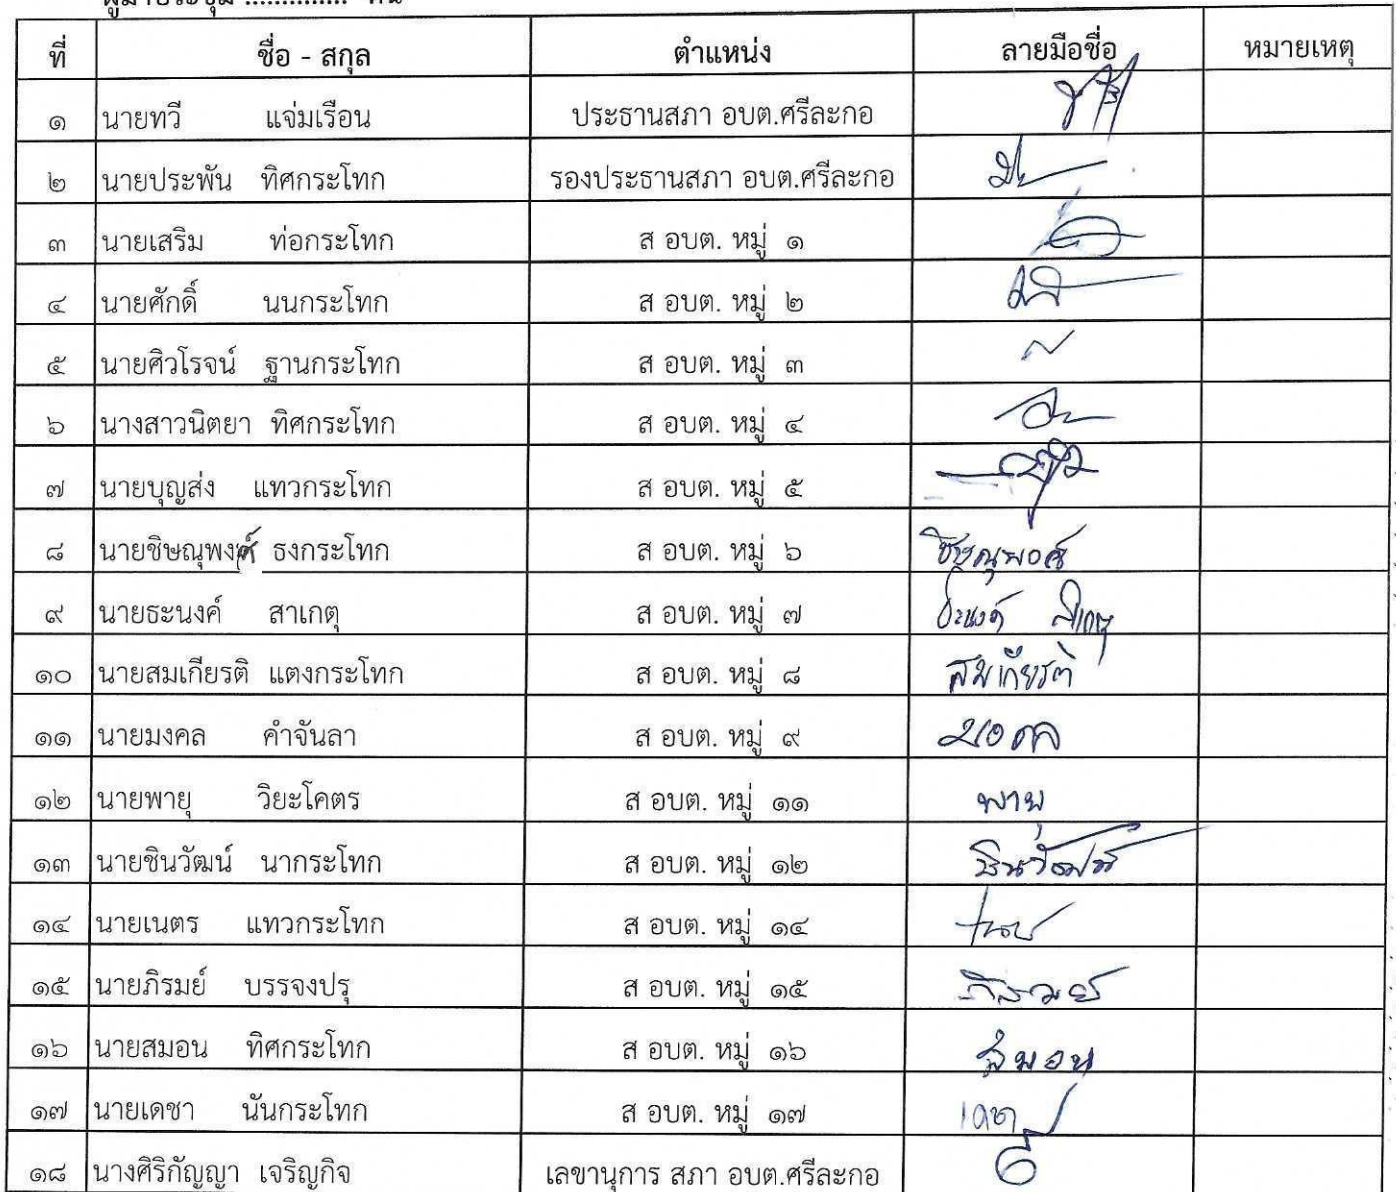 ผู้มาประชุม .............. คน
ที่ ชื่อ - สกุล ตำแหน่ง ลายมือชื่อ หมายเหตุ
๑ นายทวี แจ่มเรือน ประธานสภา อบต.ศรีละกอ
๒ นายประพัน ทิศกระโทก รองประธานสภา อบต.ศรีละกอ
๓ นายเสริม ท่อกระโทก ส อบต. หมู่ ๑
๔ นายศักดิ์ นนกระโทก ส อบต. หมู่ ๒
๕ นายศิวโรจน์ ฐานกระโทก ส อบต. หมู่ ๓
๖ นางสาวนิตยา ทิศกระโทก ส อบต. หมู่ ๔
๗ นายบุญส่ง แทวกระโทก ส อบต. หมู่ ๕
๘ นายชิษณุพงศ์ ธงกระโทก ส อบต. หมู่ ๖ ชิษณุพงศ์
๙ นายธะนงค์ สาเกตุ ส อบต. หมู่ ๗ ธะนงค์ สาเกตุ
๑๐ นายสมเกียรติ แตงกระโทก ส อบต. หมู่ ๘ สมเกียรติ
๑๑ นายมงคล คำจันลา ส อบต. หมู่ ๙ มงคล
๑๒ นายพายุ วิยะโคตร ส อบต. หมู่ ๑๑ พายุ
๑๓ นายชินวัฒน์ นากระโทก ส อบต. หมู่ ๑๒ ชินวัฒน์
๑๔ นายเนตร แทวกระโทก ส อบต. หมู่ ๑๔
๑๕ นายภิรมย์ บรรจงปรุ ส อบต. หมู่ ๑๕ ภิรมย์
๑๖ นายสมอน ทิศกระโทก ส อบต. หมู่ ๑๖ สมอน
๑๗ นายเดชา นันกระโทก ส อบต. หมู่ ๑๗ เดชา
๑๘ นางศิริกัญญา เจริญกิจ เลขานุการ สภา อบต.ศรีละกอ